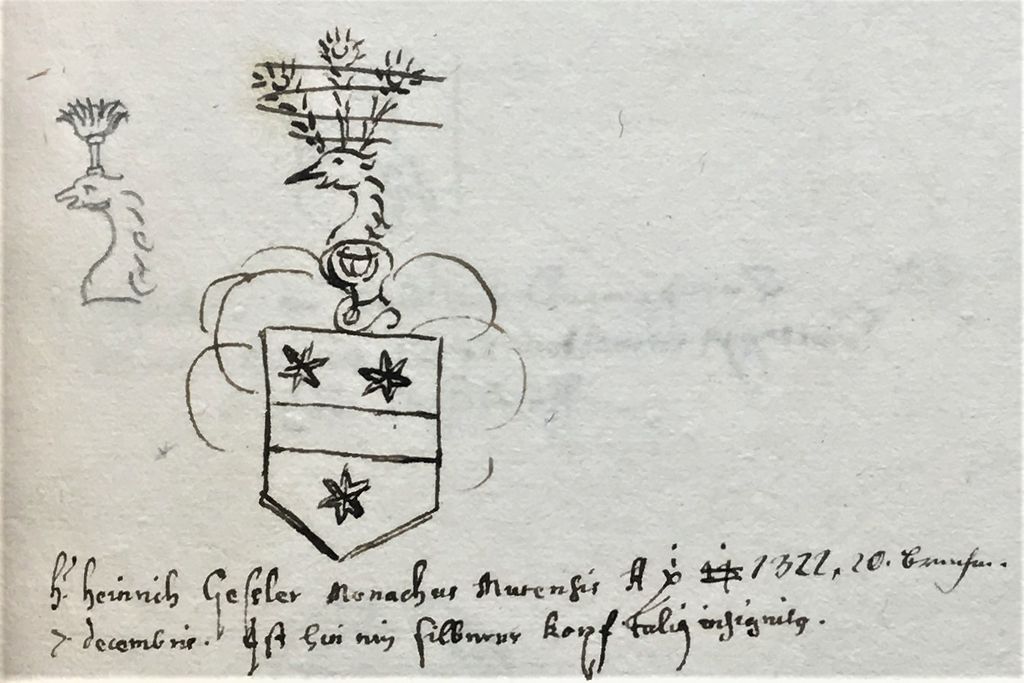 hr heinrich Gessler Monachus Murensis A 1322, 20.
7 decembris. Ist hui min silbernr kopf talis insignitus.